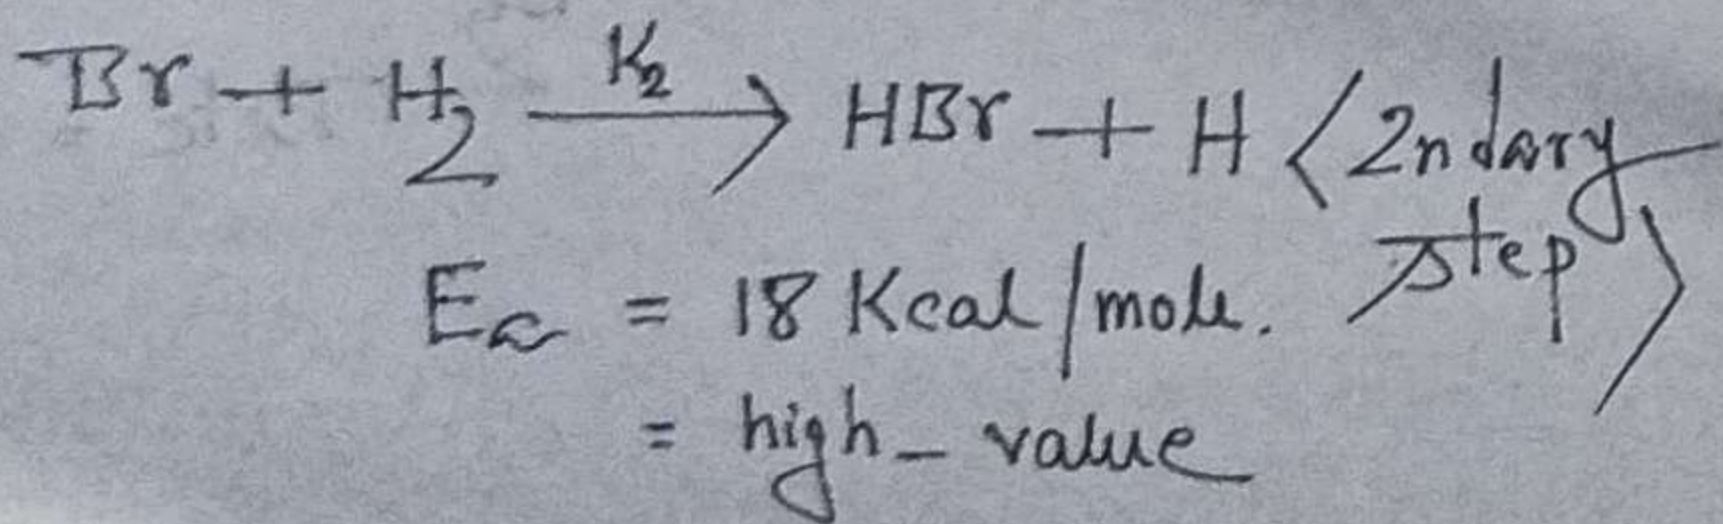 Br + H2 —K2→ HBr + H <2ndary
step>
Ea = 18 Kcal/mole.
= high - value